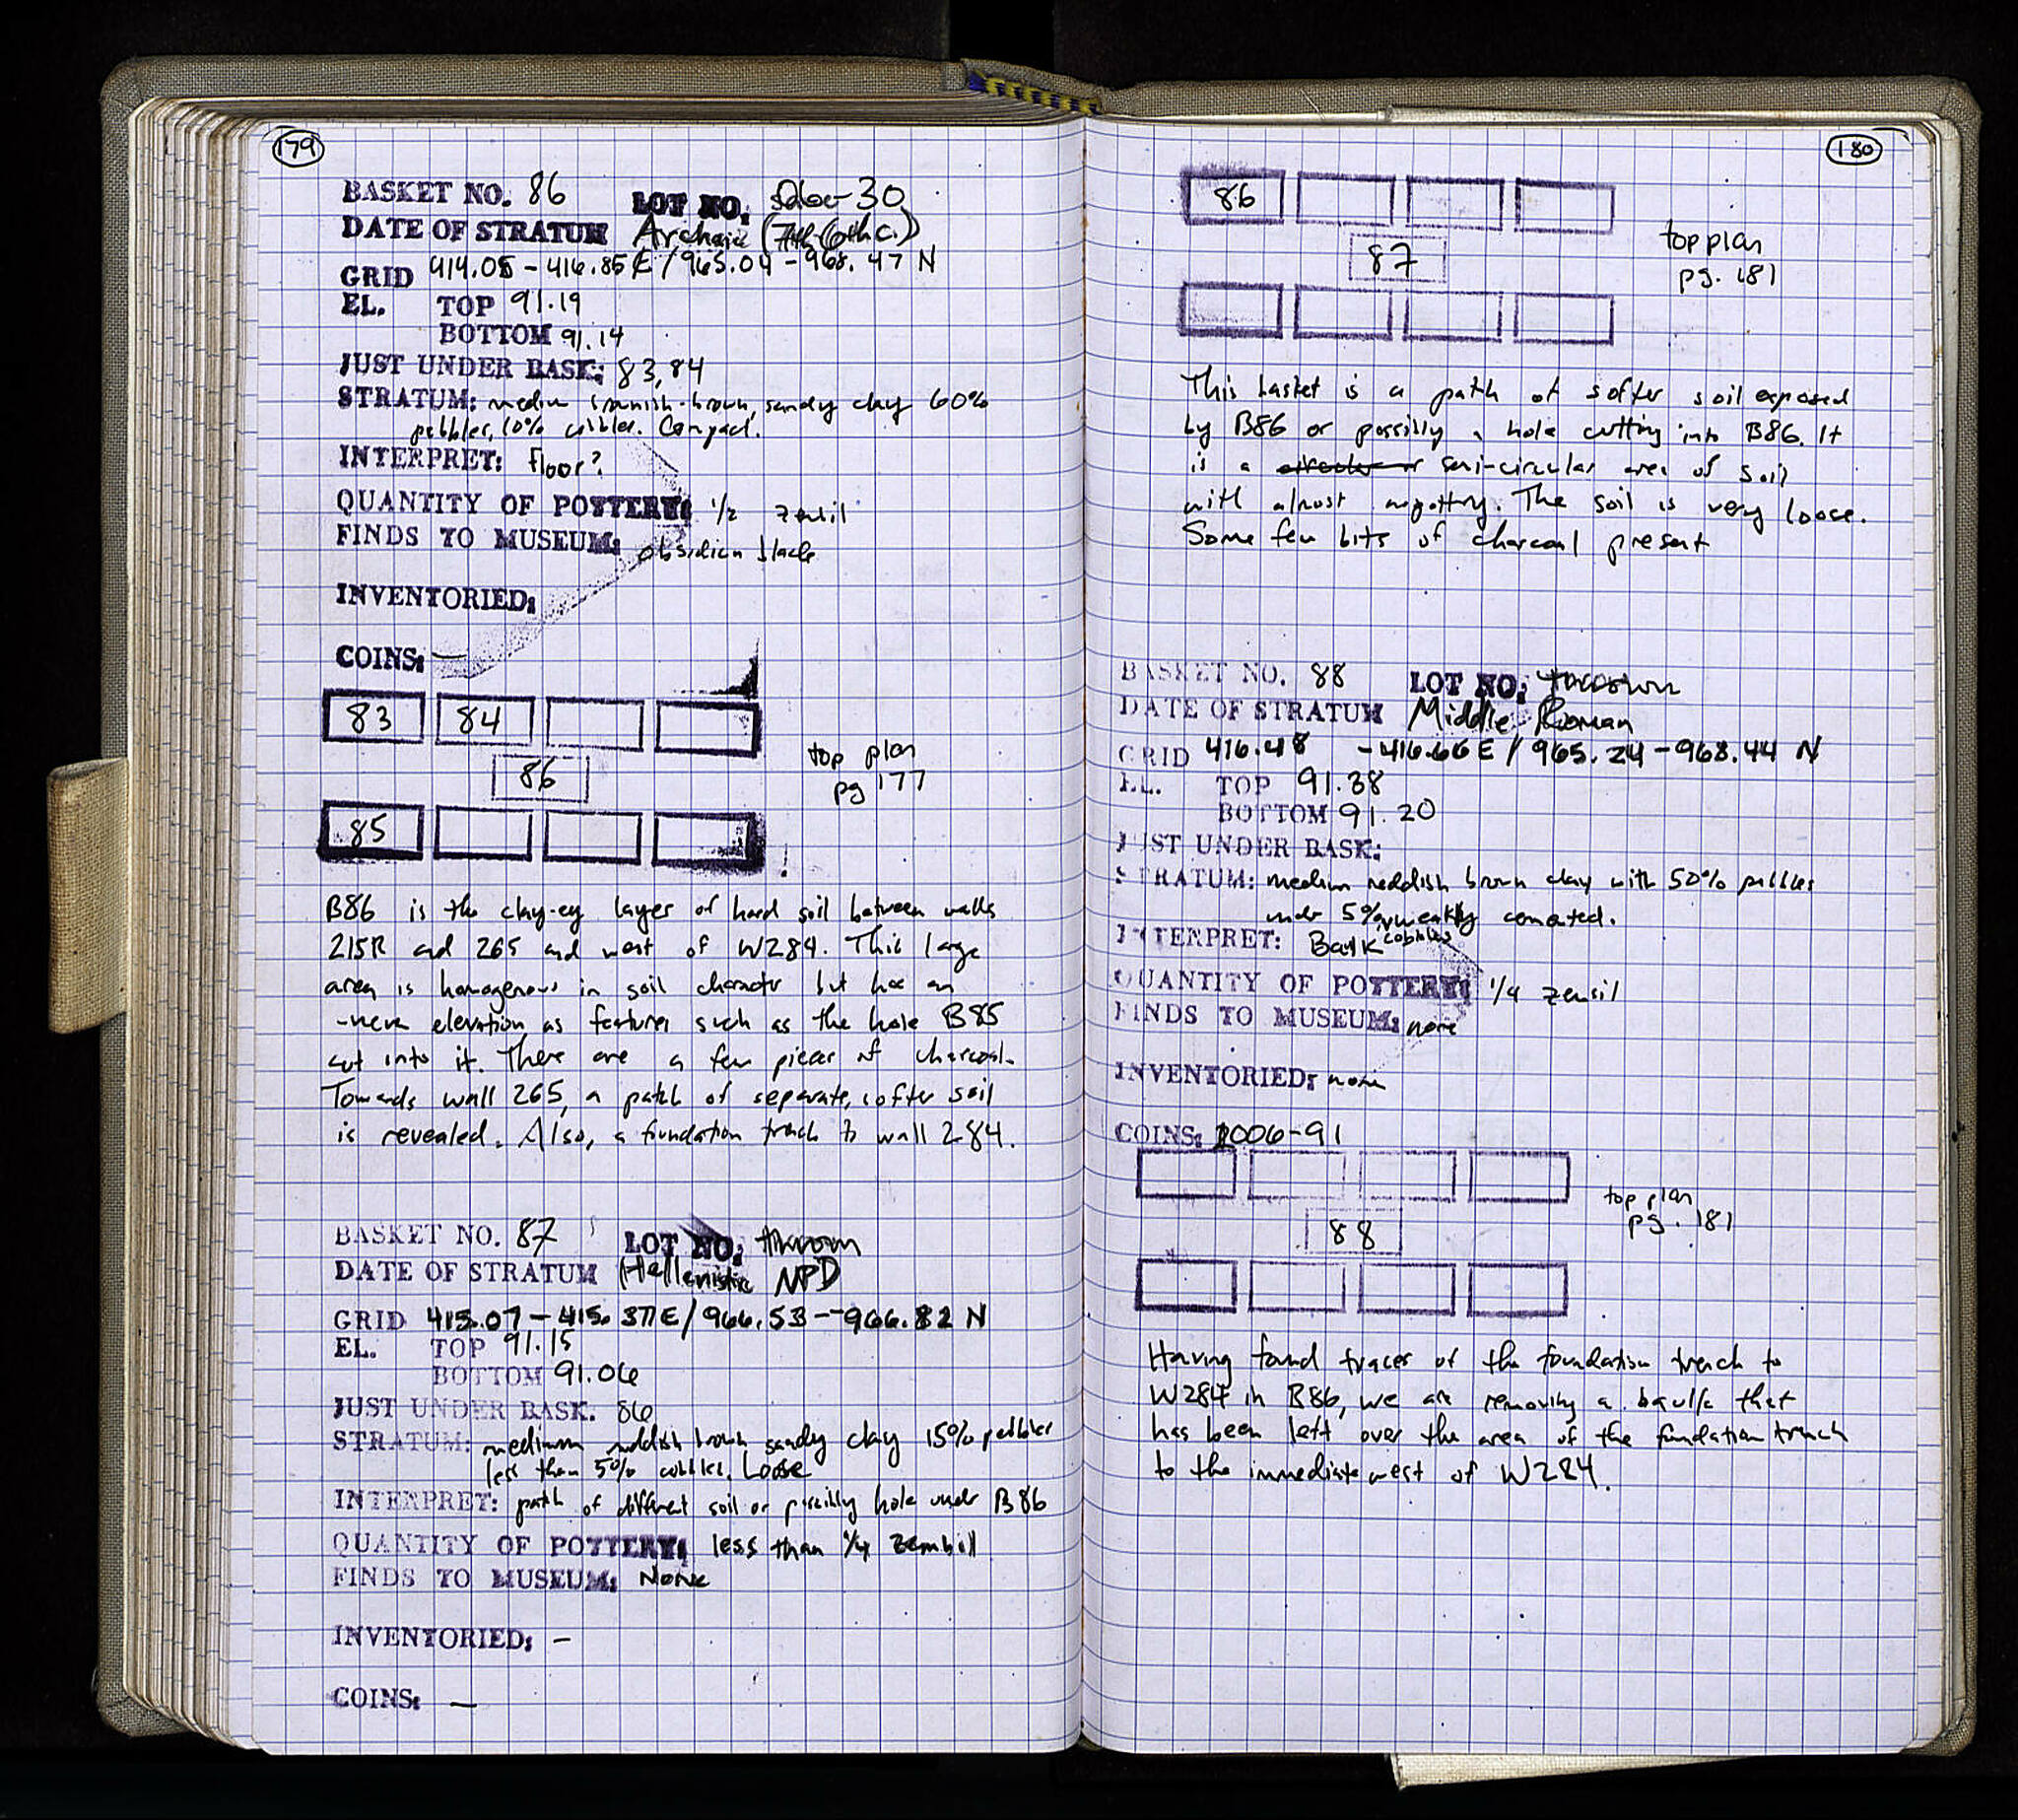 179
BASKET NO. 86 LOT NO. -30
DATE OF STRATUM Archaic (7th-6th c.)
GRID 414.05 - 416.85 E / 965.04 - 968.47 N
EL. TOP 91.19
BOTTOM 91.14
JUST UNDER BASK: 83, 84
STRATUM: medium brownish-brown, sandy clay 60%
pebbles, 10% cobbles. Compact.
INTERPRET: floor?
QUANTITY OF POTTERY: 1/2 zembil
FINDS TO MUSEUM: obsidian blade
INVENTORIED:
COINS: —
83 84
86
85
top plan
pg 177
B86 is the clay-ey layer of hard soil between walls
215R and 265 and west of W284. This large
area is homogenous in soil character but has an
elevation as features such as the hole B85
cut into it. There are a few pieces of charcoal.
Towards wall 265, a patch of separate, softer soil
is revealed. Also, a foundation trench to wall 284.
BASKET NO. 87 LOT NO: thrown
DATE OF STRATUM Hellenistic NPD
GRID 415.07 - 415.37 E / 966.53 - 966.82 N
EL. TOP 91.15
BOTTOM 91.06
JUST UNDER BASK. 86
STRATUM: medium reddish brown sandy clay 15% pebbles
less than 5% cobbles. Loose
INTERPRET: path of different soil or possibly hole under B86
QUANTITY OF POTTERY: less than 1/4 zembil
FINDS TO MUSEUM: None
INVENTORIED: —
COINS: —
180
86
87
top plan
pg. 181
This basket is a path of softer soil exposed
by B86 or possibly a hole cutting into B86. It
is a semi-circular area of soil
with almost no pottery. The soil is very loose.
Some few bits of charcoal present
BASKET NO. 88 LOT NO: thrown
DATE OF STRATUM Middle Roman
GRID 416.48 - 416.66 E / 965.24 - 968.44 N
EL. TOP 91.38
BOTTOM 91.20
JUST UNDER BASK:
STRATUM: medium reddish brown clay with 50% pebbles
under 5% cobbles weakly cemented.
INTERPRET: Baulk
QUANTITY OF POTTERY: 1/4 zembil
FINDS TO MUSEUM: none
INVENTORIED: none
COINS: 2006-91
88
top plan
pg. 181
Having found traces of the foundation trench to
W284 in B86, we are removing a baulk that
has been left over the area of the fundation trench
to the immediate west of W284.